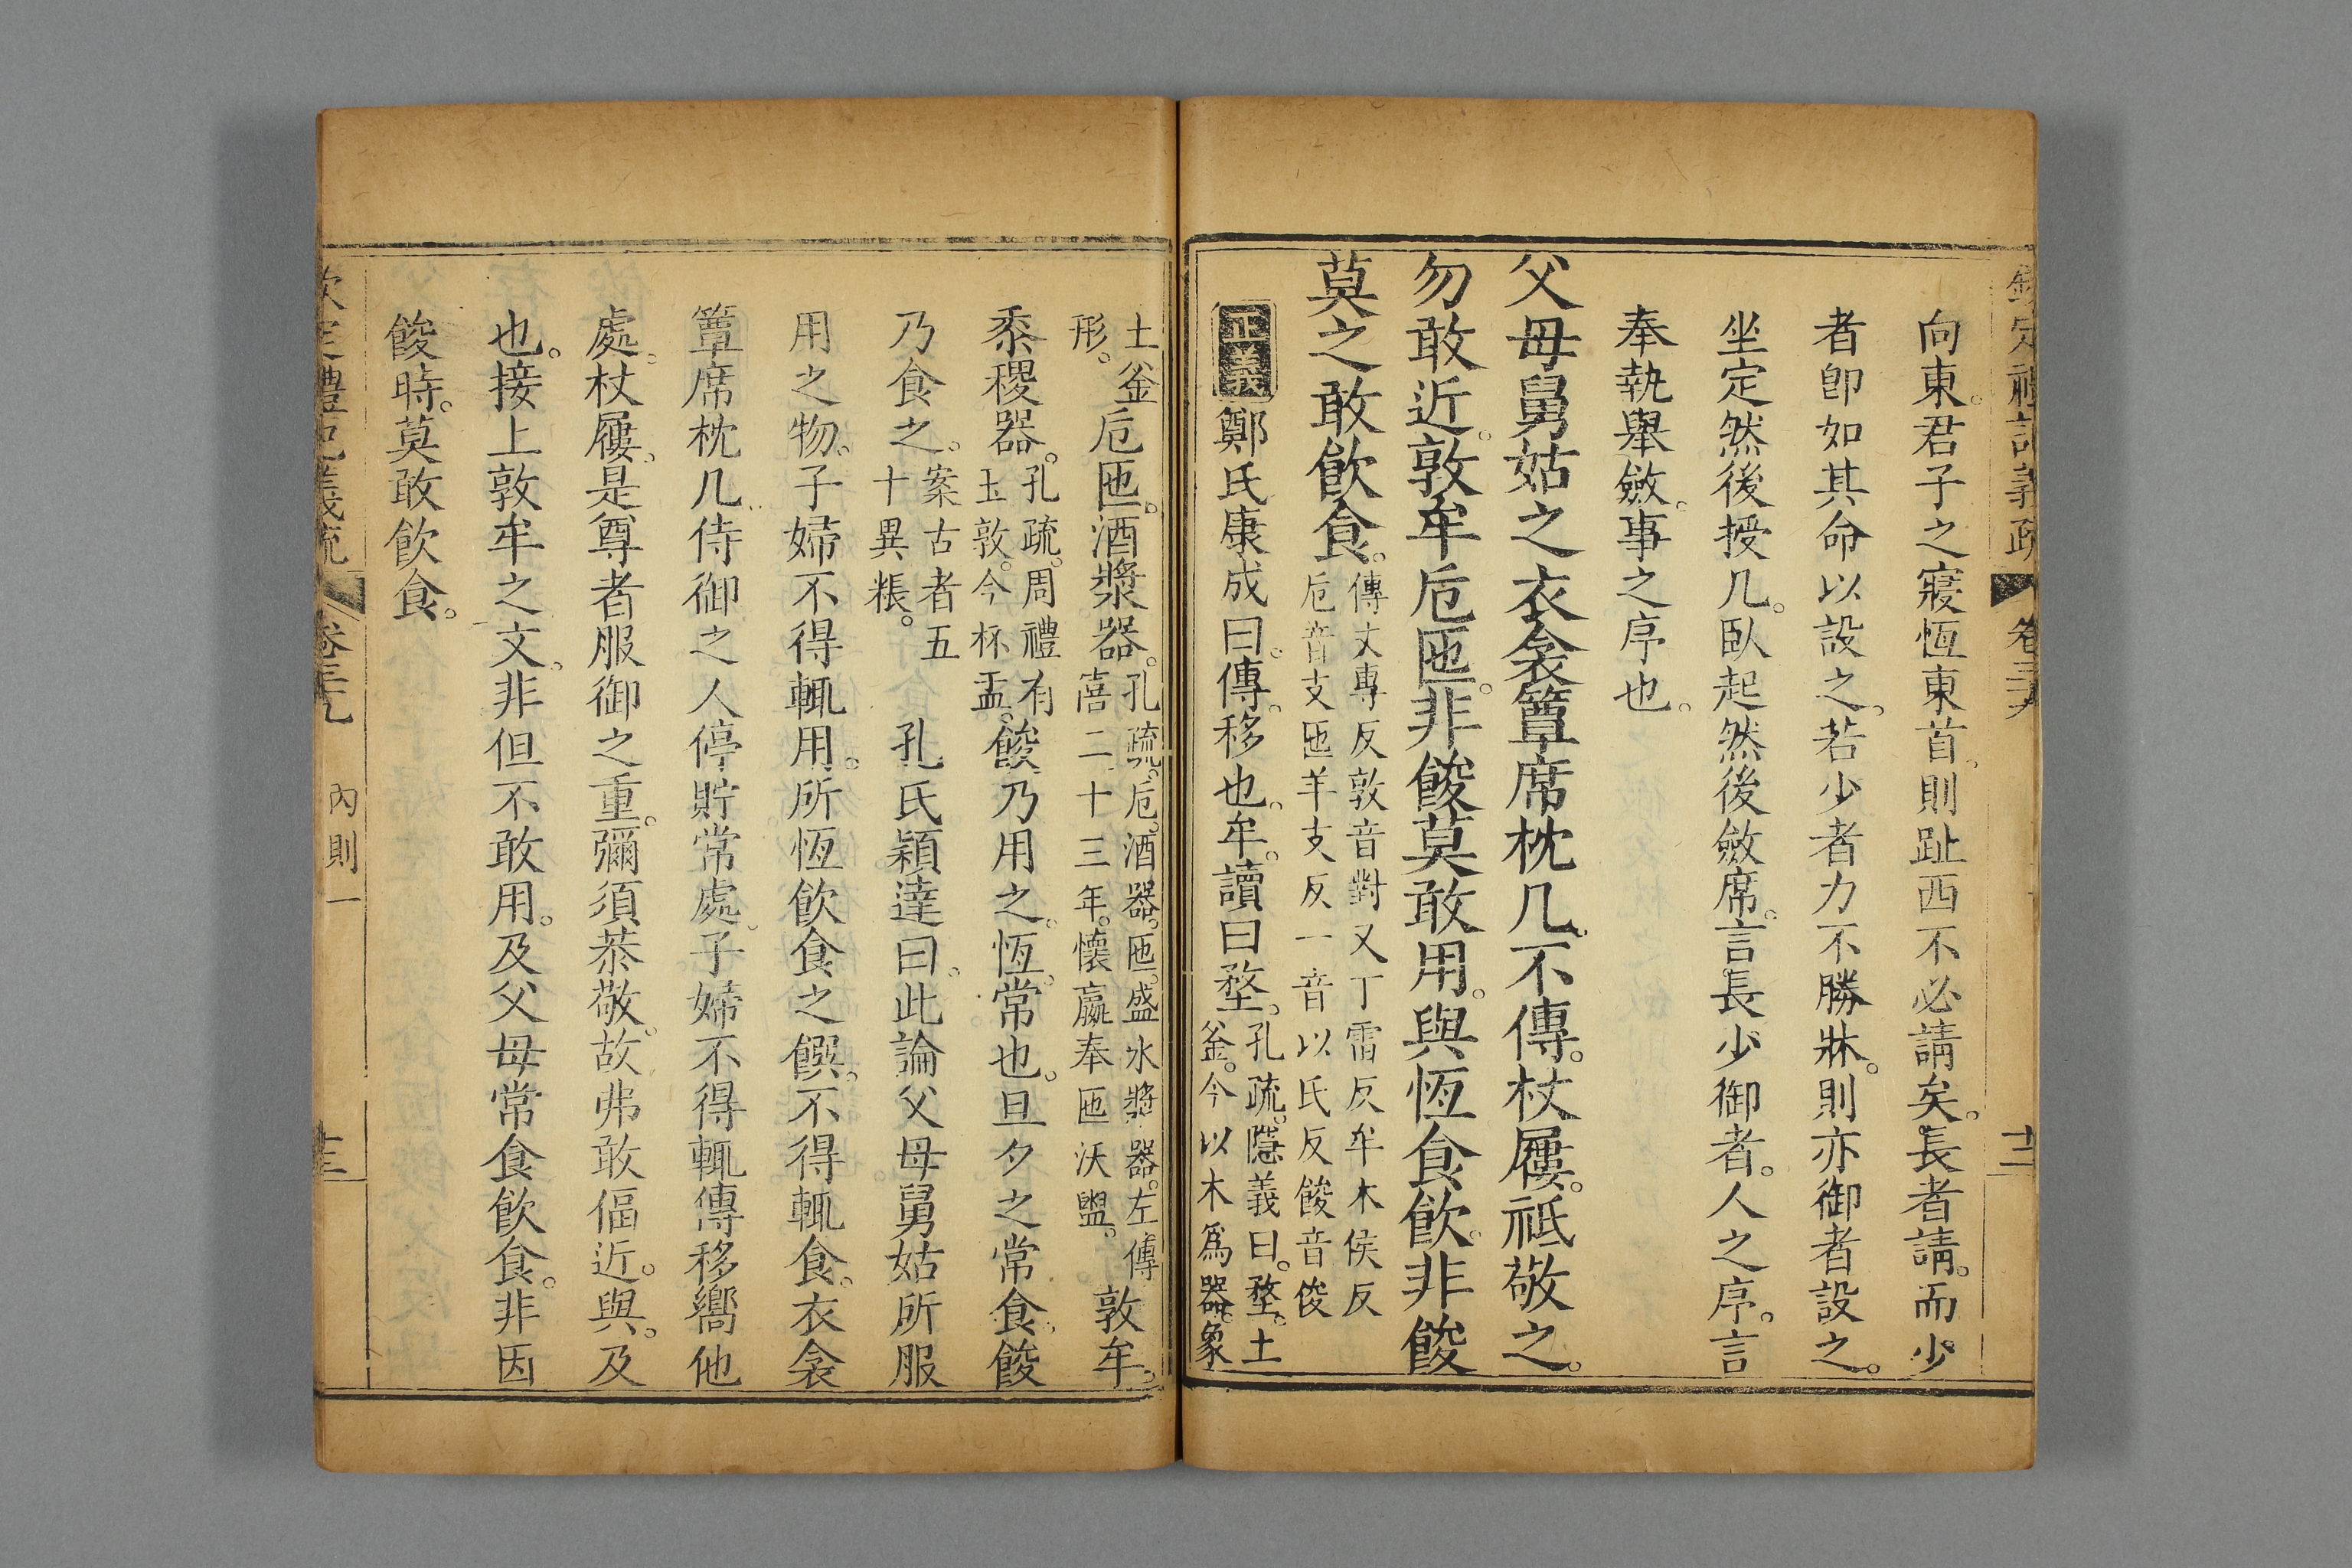 欽定禮記義疏 卷三十九 十二
向東。君子之寢恆東首。則趾西不必請矣。長者請。而少
者卽如其命以設之。若少者力不勝牀。則亦御者設之。
坐定然後授几。臥起然後斂席。言長少御者。人之序。言
奉執舉斂。事之序也。
父母舅姑之衣衾簟席枕几。不傳。杖屨。祗敬之。
勿敢近。敦牟卮匜。非餕莫敢用。與恆食飲。非餕
莫之敢飮食。
傳丈專反敦音對又丁雷反牟木侯反
卮音支匜羊支反一音以氏反餕音俊
正義鄭氏康成曰。傳。移也。牟。讀曰堥。
孔疏。隱義曰。堥。土
釜。今以木爲器。象
土釜
形。
卮匜。酒漿器。
孔疏。卮。酒器。匜。盛水漿器。左傳
僖二十三年。懷嬴奉匜沃盥。
敦牟。
黍稷器。
孔疏。周禮有
玉敦。今杯盂。
餕乃用之。恆。常也。旦夕之常食。餕
乃食之。
案古者五
十異粻。
孔氏穎達曰。此論父母舅姑所服
用之物。子婦不得輒用。所恆飲食之饌。不得輒食。衣衾
簟席枕几。侍御之人停貯常處。子婦不得輒傳移嚮他
處。杖屨。是尊者服御之重。彌須恭敬。故弗敢偪近。與。及
也。接上敦牟之文。非但不敢用。及父母常食飲食。非因
餕時。莫敢飲食。
欽定禮記義疏 卷三十九 內則一 十三